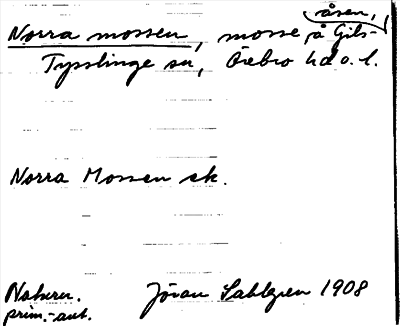 Norra mossen, mosse å Gils-
åsen,
Tysslinge sn, Örebro hd o. l.
Norra Mossen ek.
Naturn. Jöran Sahlgren 1908
prim.-ant.